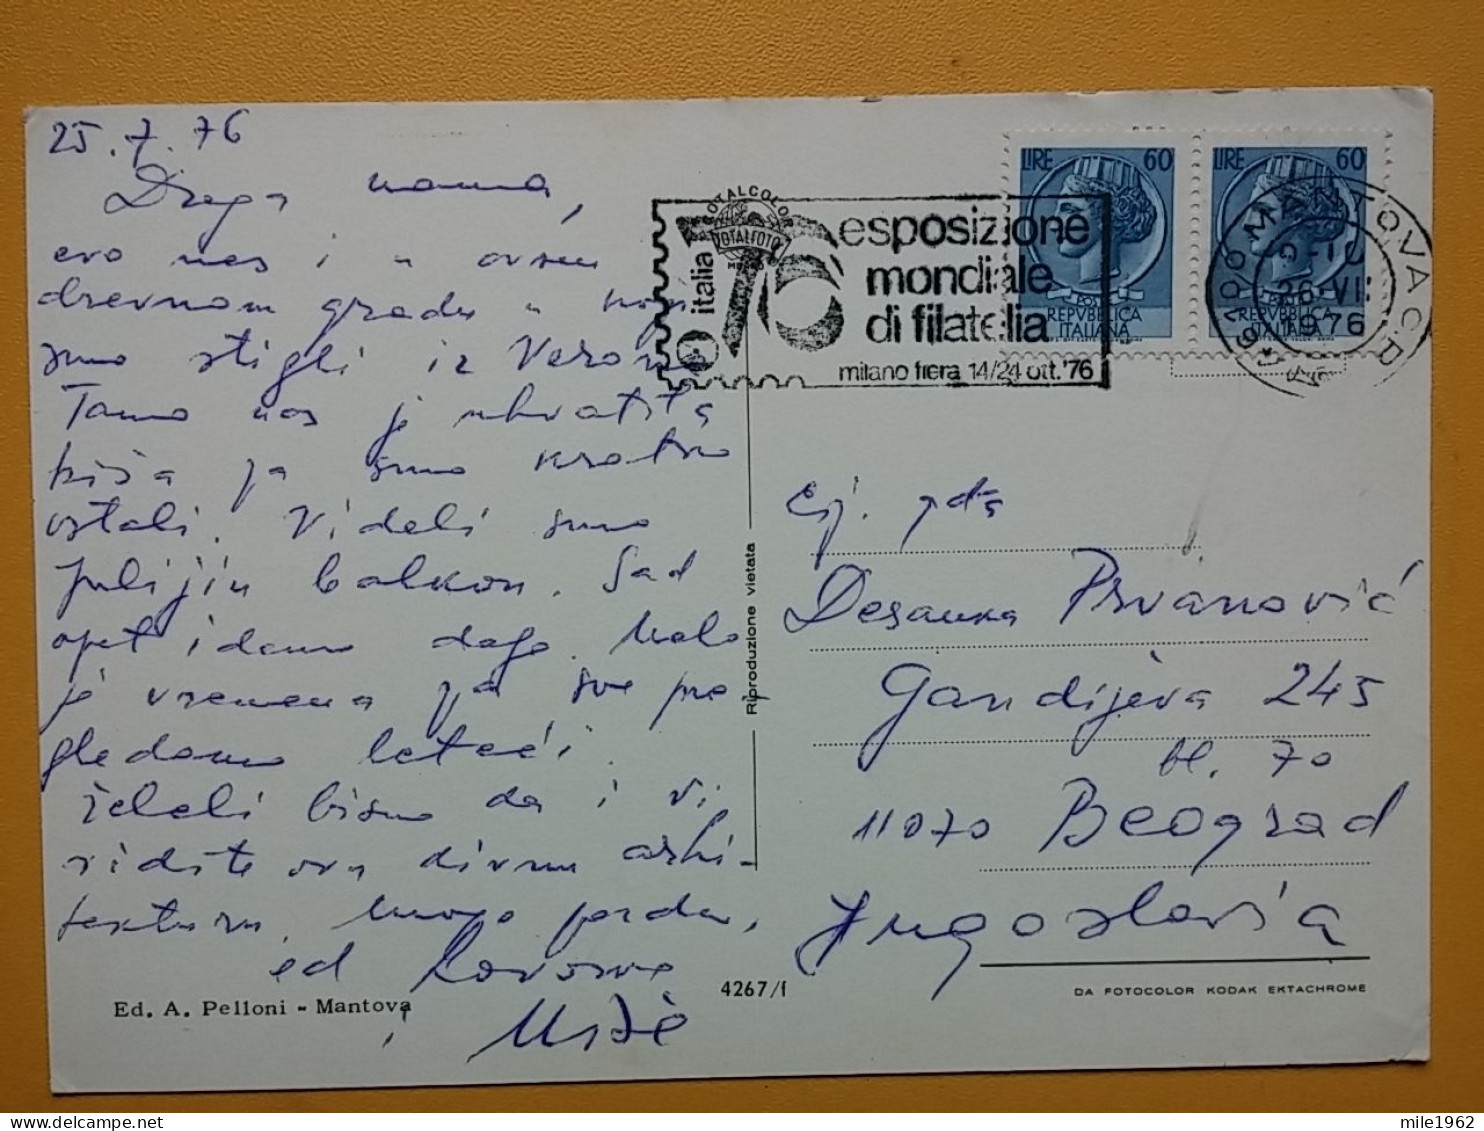 25.7.76
Draga mama,
evo nas i u ovom
drevnom gradu u koji
smo stigli iz Verone
Tamo nas je uhvatila
kiša pa smo kratko
ostali. Videli smo
Julijin balkon. Sad
opet idemo dalje. Malo
je vremena pa sve pre-
gledamo leteći.
Želeli bismo da i Vi
vidite ovu divnu arhi-
tekturu. Mnogo pozdrava,
od
i
Ed. A. Pelloni - Mantova
4267/f
Riproduzione vietata
TOTALCOLOR
TOTALFOTO
italia 76
esposizione
mondiale
di filatelia
milano fiera 14/24 ott. '76
LIRE 60
POSTE
REPVBBLICA
ITALIANA
LIRE 60
REPVBBLICA
ITALIANA
MANTOVA C.R.
1976
Desanka Prvanović
Gandijeva 245
bl. 70
11070 Beograd
Jugoslavia
DA FOTOCOLOR KODAK EKTACHROME
mile1962